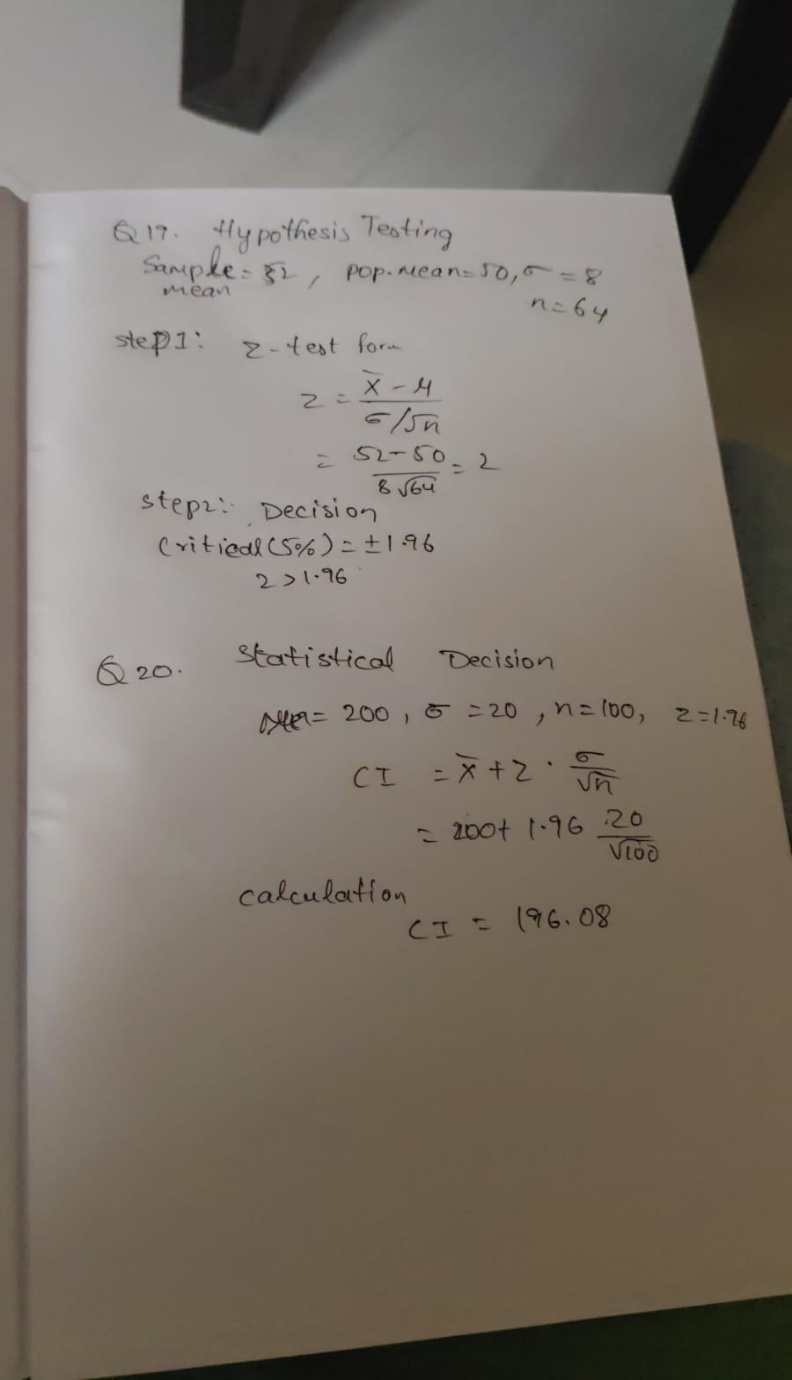 Q19. Hypothesis Testing
Sample mean = 52, pop. mean = 50, σ = 8
n = 64
step1: z-test form
z = x̄ - μ / σ/√n
= 52-50 / 8√64 = 2
step2: Decision
Critical (5%) = ±1.96
2 > 1.96
Q20. Statistical Decision
= 200, σ = 20, n = 100, z = 1.96
CI = x̄ + z · σ/√n
= 200 + 1.96 20/√100
calculation
CI = 196.08